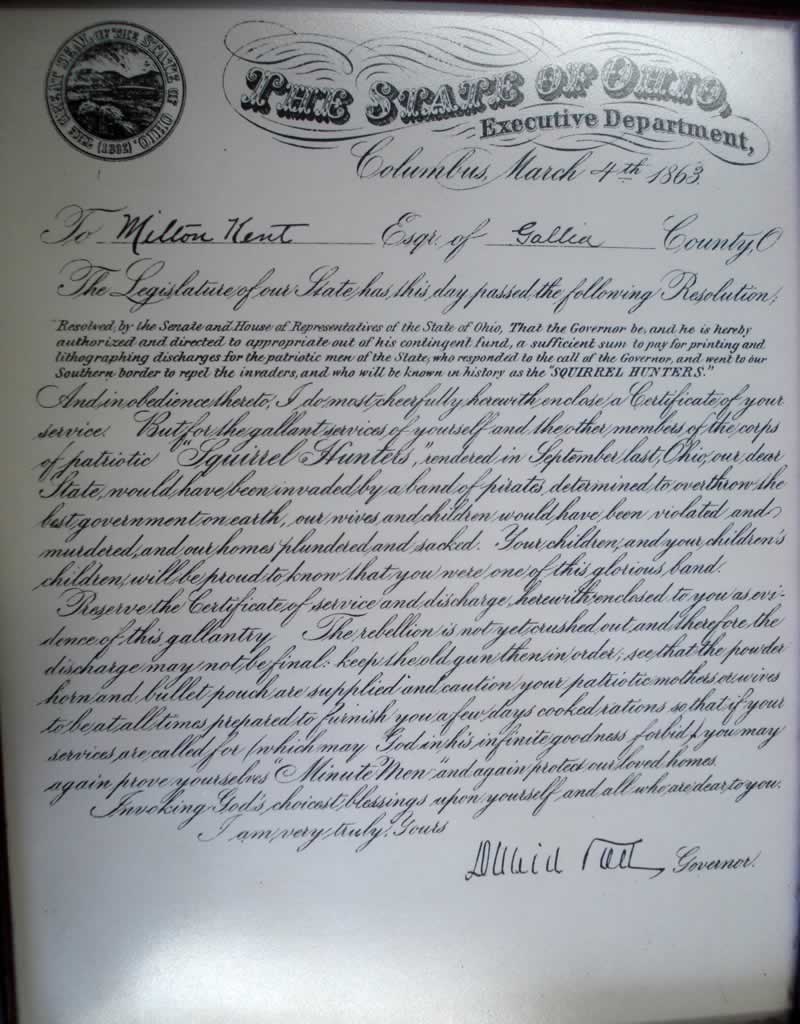 THE GREAT SEAL OF THE STATE OF OHIO.
THE STATE OF OHIO,
Executive Department,
Columbus, March 4th 1863.
To Milton Kent Esqr. of Gallia County, O
The Legislature of our State has this day passed the following Resolution;
"Resolved, by the Senate and House of Representatives of the State of Ohio, That the Governor be, and he is hereby
authorized and directed to appropriate out of his contingent fund, a sufficient sum to pay for printing and
lithographing discharges for the patriotic men of the State, who responded to the call of the Governor, and went to our
Southern border to repel the invaders, and who will be known in history as the "SQUIRREL HUNTERS."
And in obedience thereto, I do most cheerfully herewith enclose a Certificate of your
service. But for the gallant services of yourself and the other members of the corps
of patriotic "Squirrel Hunters," rendered in September last, Ohio, our dear
State, would have been invaded by a band of pirates, determined to overthrow the
best government on earth, our wives and children would have been violated and
murdered, and our homes plundered and sacked. Your children, and your children's
children, will be proud to know that you were one of this glorious band.
Preserve the Certificate of service and discharge, herewith enclosed to you as evi-
dence of this gallantry The rebellion is not yet crushed out, and therefore the
discharge may not be final: keep the old gun then in order; see that the powder
horn and bullet pouch are supplied and caution your patriotic mothers or wives
to be at all times prepared to furnish you a few days cooked rations so that if your
services are called for (which may God in his infinite goodness forbid) you may
again prove yourselves "Minute Men," and again protect our loved homes.
Invoking God's choicest blessings upon yourself and all who are dear to you.
I am, very truly, Yours
David Tod, Governor.